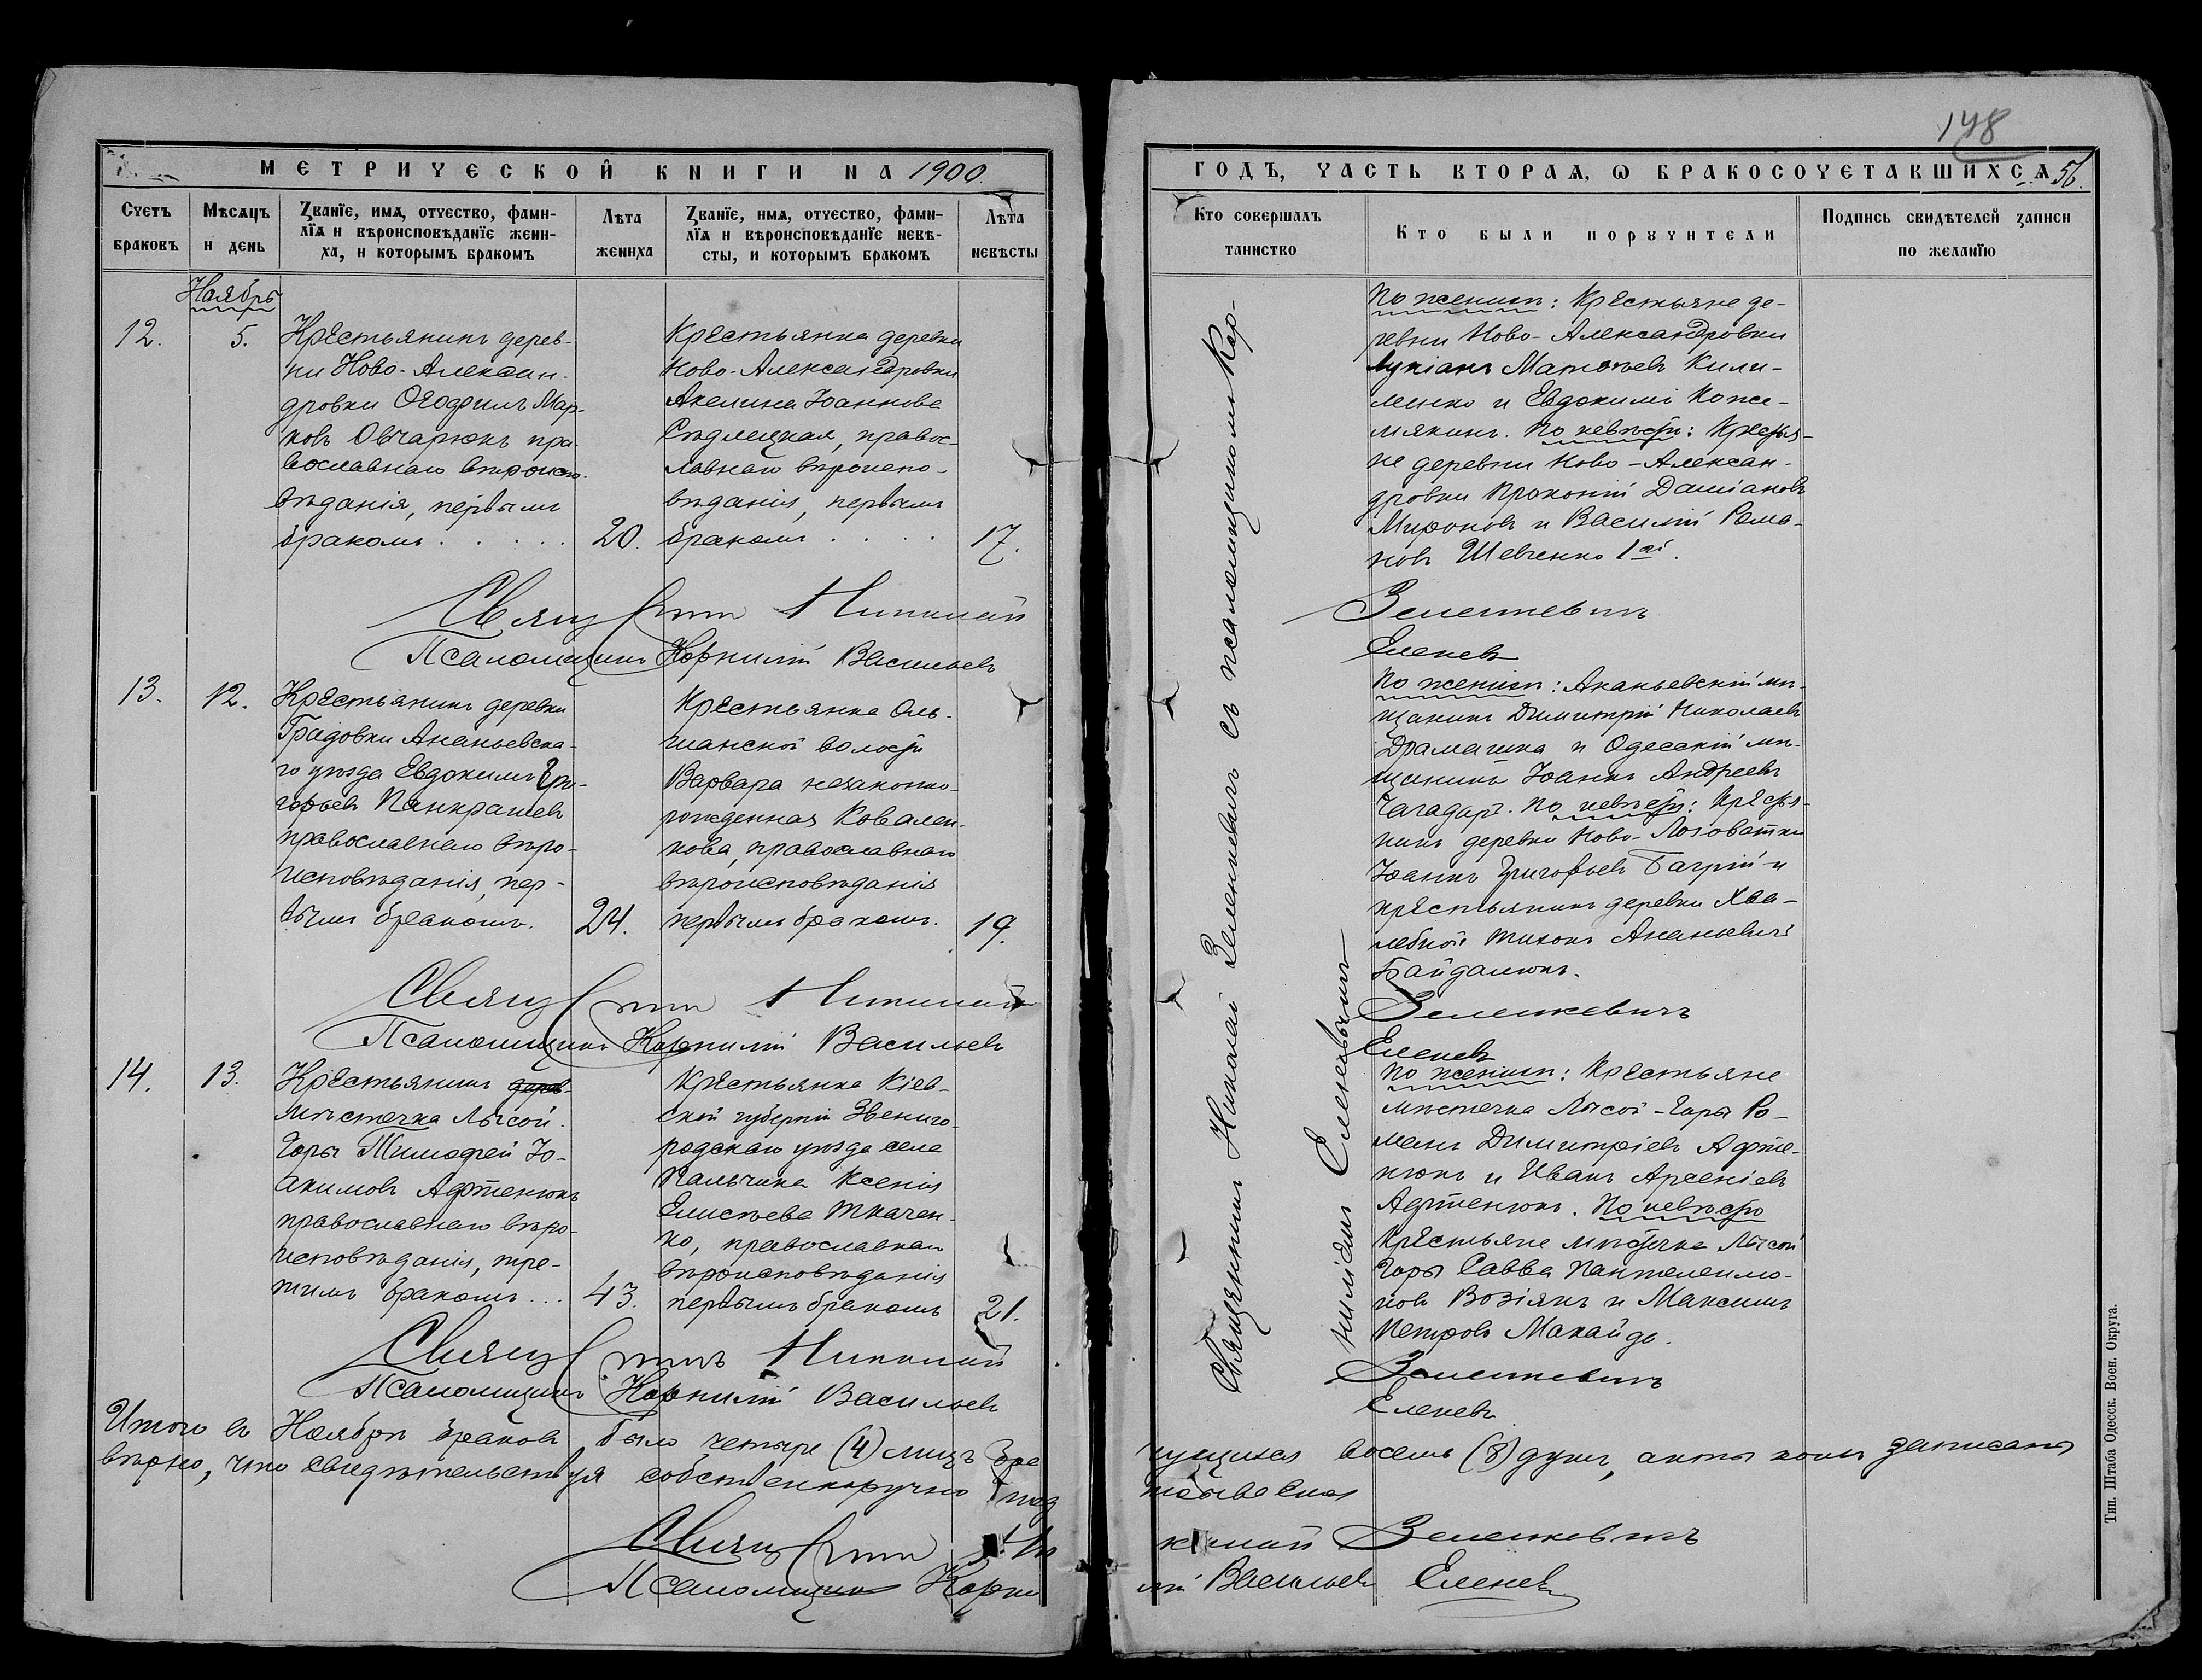 148
МЕТРИЧЕСКОЙ КНИГИ НА 1900.
ГОДЪ, ЧАСТЬ ВТОРАѦ, Ѡ БРАКОСОЧЕТАВШИХСѦ 56.
Счетъ
браковъ
Мѣсѧцъ
и день
Званїе, имѧ, отчество, фами-
лїѧ и вѣроисповѣданїе жени-
ха, и которымъ бракомъ
Лѣта
жениха
Званїе, имѧ, отчество, фами-
лїѧ и вѣроисповѣданїе невѣ-
сты, и которымъ бракомъ
Лѣта
невѣсты
Кто совершалъ
таинство
Кто были поручители
Подпись свидѣтелей записи
по желанїю
Ноябрь
12.
5.
Крестьянинъ дерев-
ни Ново-Алексан-
дровки Ѳеофилъ Мар-
ковъ Овчарюкъ пра-
вославнаго вѣроиспо-
вѣданія, первымъ
бракомъ . . . . .
20.
Крестьянка деревни
Ново-Александровки
Акелина Іоаннова
Сѣдлецкая, правос-
лавнаго вѣроиспо-
вѣданія, первымъ
бракомъ . . . .
17.
Священникъ Николай Зеленкевичъ съ псаломщикомъ Кор-
ниліемъ Еленевымъ
По женихѣ: Крестьяне де-
ревни Ново-Александровки
Лукіанъ Матѳѣевъ Кили-
менко и Евдокимъ Коже-
мякинъ. По невѣстѣ: Крестья-
не деревни Ново-Алексан-
дровки Прокопій Даміановъ
Мироновъ и Василій Рома-
новъ Шевченко 1ый.
Священникъ Николай Зеленкевичъ
Псаломщикъ Корнилій Васильевъ Еленевъ
13.
12.
Крестьянинъ деревни
Градовки Ананьевска-
го уѣзда Евдокимъ Гри-
горьевъ Панкратьевъ
православнаго вѣро-
исповѣданія, пер-
вымъ бракомъ.
24.
Крестьянка Оль-
шанской волости
Варвара незаконно-
рожденная Ковален-
кова, православнаго
вѣроисповѣданія
первымъ бракомъ.
19.
По женихѣ: Ананьевскій мѣ-
щанинъ Димитрій Николаевъ
и Одесскій мѣ-
щанинъ Іоаннъ Андреевъ
По невѣстѣ: Крестья-
нинъ деревни Ново-Лозоватки
Іоаннъ Григорьевъ Багрій и
крестьянинъ деревни Хва-
лебной Тихонъ Ананьевичъ
Байдалюкъ.
Священникъ Николай Зеленкевичъ
Псаломщикъ Корнилій Васильевъ Еленевъ
14.
13.
Крестьянинъ дерев-
Мѣстечка Лысой
Горы Тимофей Іо-
акимовъ Афтенюкъ
православнаго вѣро-
исповѣданія, тре-
тимъ бракомъ...
43.
Крестьянка Кіев-
ской губерніи Звениго-
родскаго уѣзда села
Пальчика Ксенія
Елисѣева Ткачен-
ко, православнаго
вѣроисповѣданія
первымъ бракомъ
21.
По женихѣ: Крестьяне
мѣстечка Лысой-Горы Ро-
манъ Димитріевъ Афте-
нюкъ и Иванъ Арсеніевъ
Афтенюкъ. По невѣстѣ
Крестьяне мѣстечка Лысой
Горы Савва Пантелеимо-
новъ Возіянъ и Максимъ
Петровъ Макайда.
Священникъ Николай Зеленкевичъ
Псаломщикъ Корнилій Васильевъ Еленевъ
Итого въ Ноябрѣ браковъ было четыре (4) лицъ бра
чущихся восемь (8) душъ, акты коихъ записаны
вѣрно, что свидѣтельствуя собственноручно под
писываемся
Священникъ Николай Зеленкевичъ
Псаломщикъ Корнилій Васильевъ Еленевъ
Тип. Штаба Одесск. Воен. Округа.